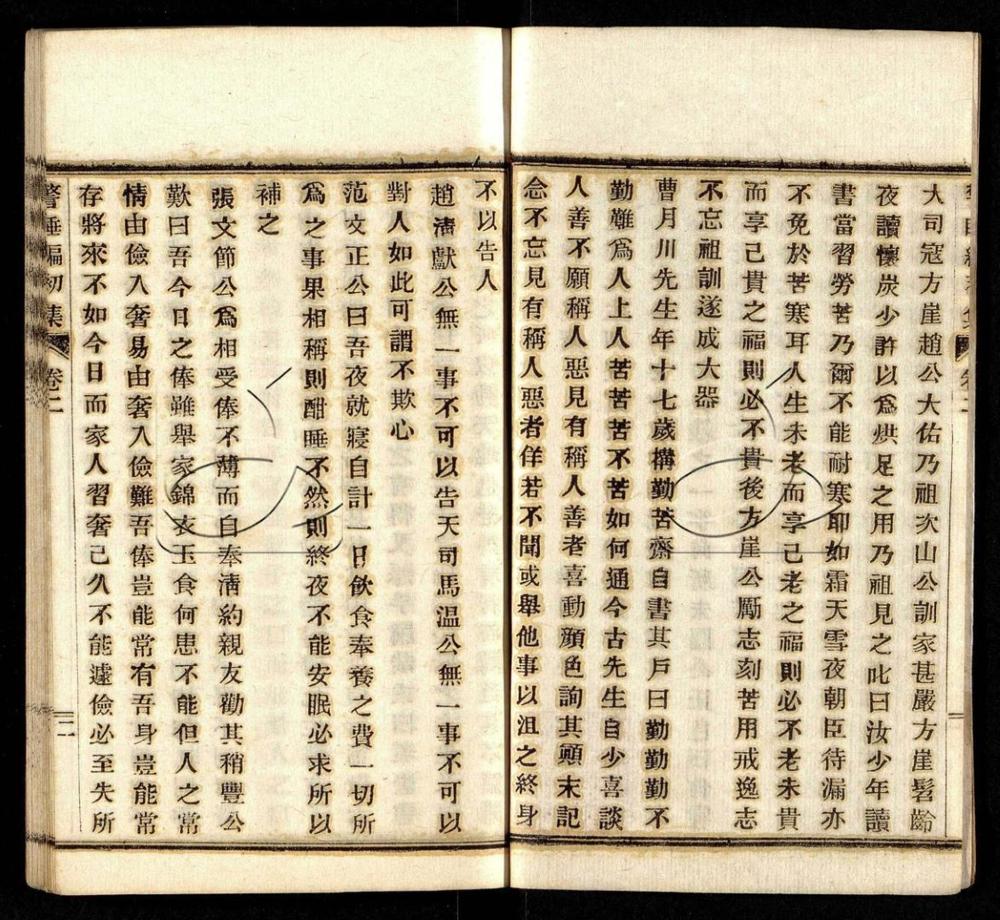 大司寇方崖趙公大佑乃祖次山公訓家甚嚴方崖髫齡
夜讀懷炭少許以爲烘足之用乃祖見之叱曰汝少年讀
書當習勞苦乃爾不能耐寒耶如霜天雪夜朝臣待漏亦
不免於苦寒耳人生未老而享已老之福則必不老未貴
而享已貴之福則必不貴後方崖公厲志刻苦用戒逸志
不忘祖訓遂成大器
曹月川先生年十七歲搆勤苦齋自書其戶曰勤勤勤不
勤難爲人上人苦苦苦不苦如何通今古先生自少喜談
人善不願稱人惡見有稱人善者喜動顏色詢其顚末記
念不忘見有稱人惡者佯若不聞或舉他事以沮之終身
不以告人
趙清獻公無一事不可以告天司馬溫公無一事不可以
對人如此可謂不欺心
范文正公曰吾夜就寢自計一日飲食奉養之費一切所
爲之事果相稱則酣睡不然則終夜不能安眠必求所以
補之
張文節公爲相受俸不薄而自奉清約親友勸其稍豐公
歎曰吾今日之俸雖舉家錦衣玉食何患不能但人之常
情由儉入奢易由奢入儉難吾俸豈能常有吾身豈能常
存將來不如今日而家人習奢已久不能遽儉必至失所
警睡編初集 卷二 二